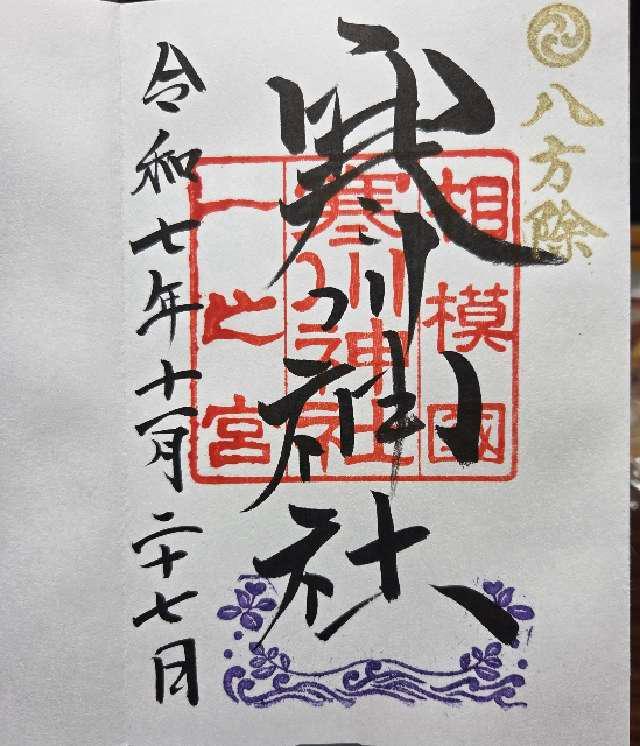 八方除
寒川神社
相模國
寒川神社
一之宮
令和七年十一月二十七日